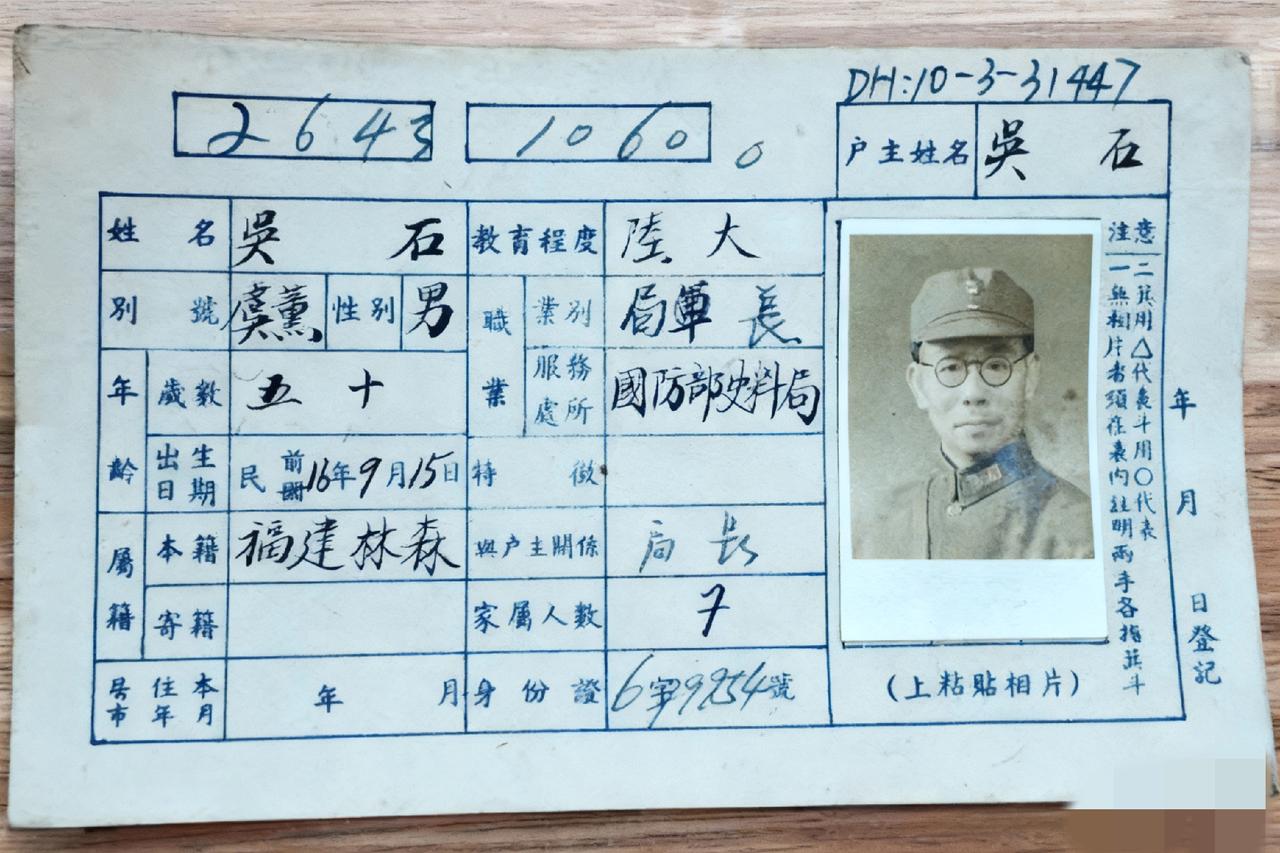 DH:10-3-31447
2643 1060 0
户主姓名 吳石
姓名 吳石 教育程度 陸大
別號 虞薰 性別 男 職業 業別 局軍長
年齡 歲數 五十 服務處所 國防部史料局
出生日期 民前國16年9月15日 特徵
屬籍 本籍 福建林森 與户主關係 局長
寄籍 家屬人數 7
居住本市年月 年 月 身份證 6字9254號
(上粘貼相片)
注意
一無相片者須在表內註明兩手各指箕斗
二箕用△代表斗用〇代表
年 月 日登記